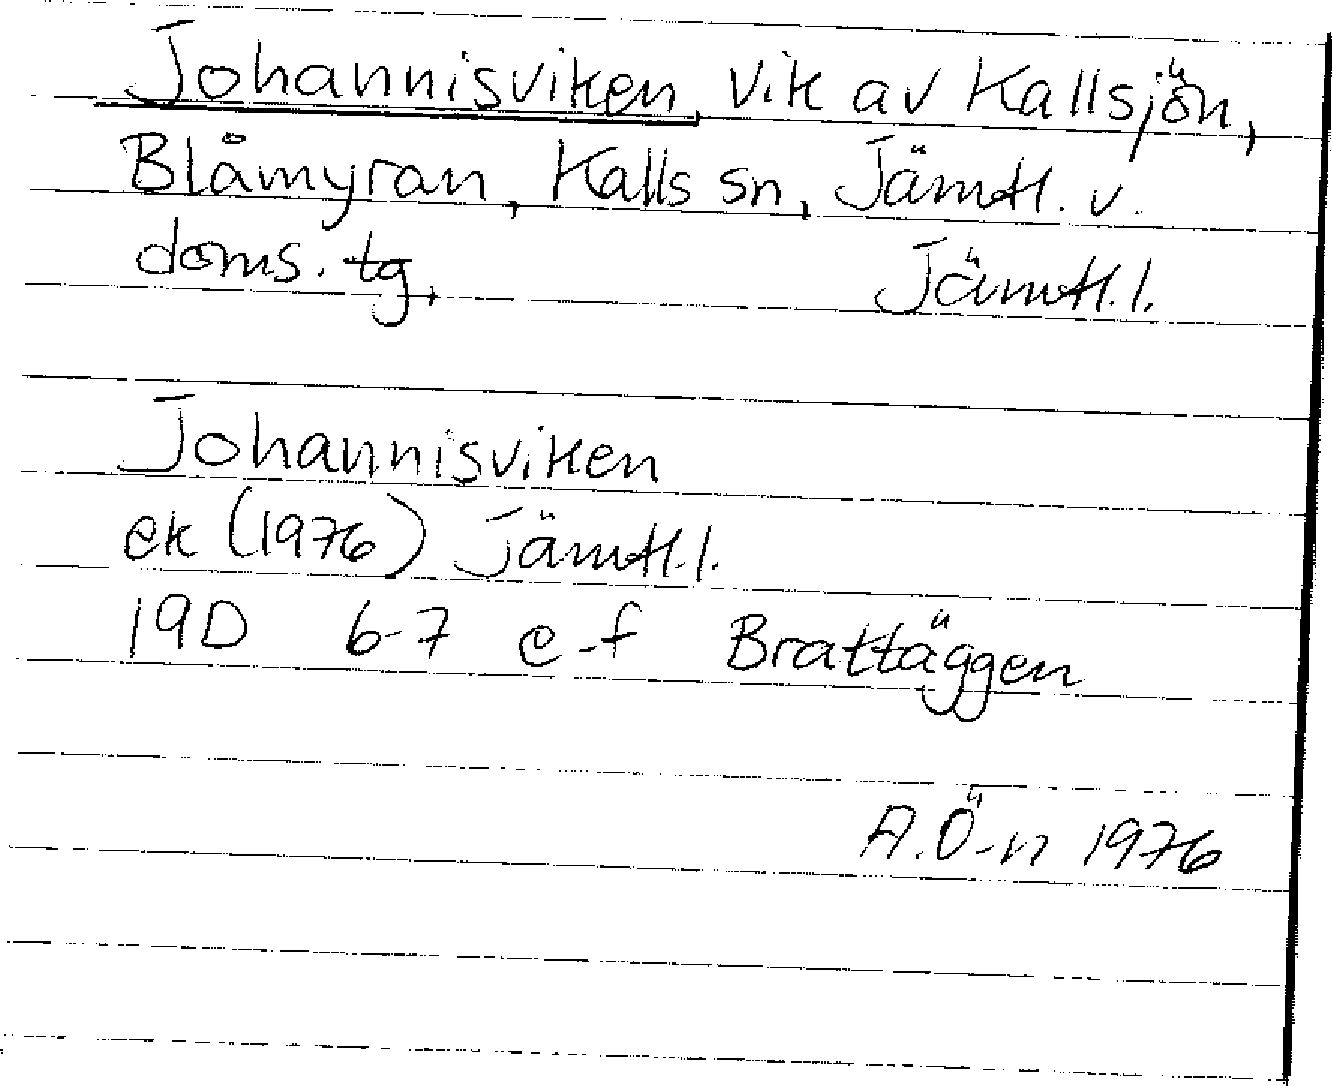 Johannisviken, vik av Kallsjön,
Blåmyran, Kalls sn, Jämtl. v.
doms. tg, Jämtl. l.
Johannisviken
ek (1976) Jämtl. l.
19D 6-7 e-f Brattäggen
A.Ö-n 1976